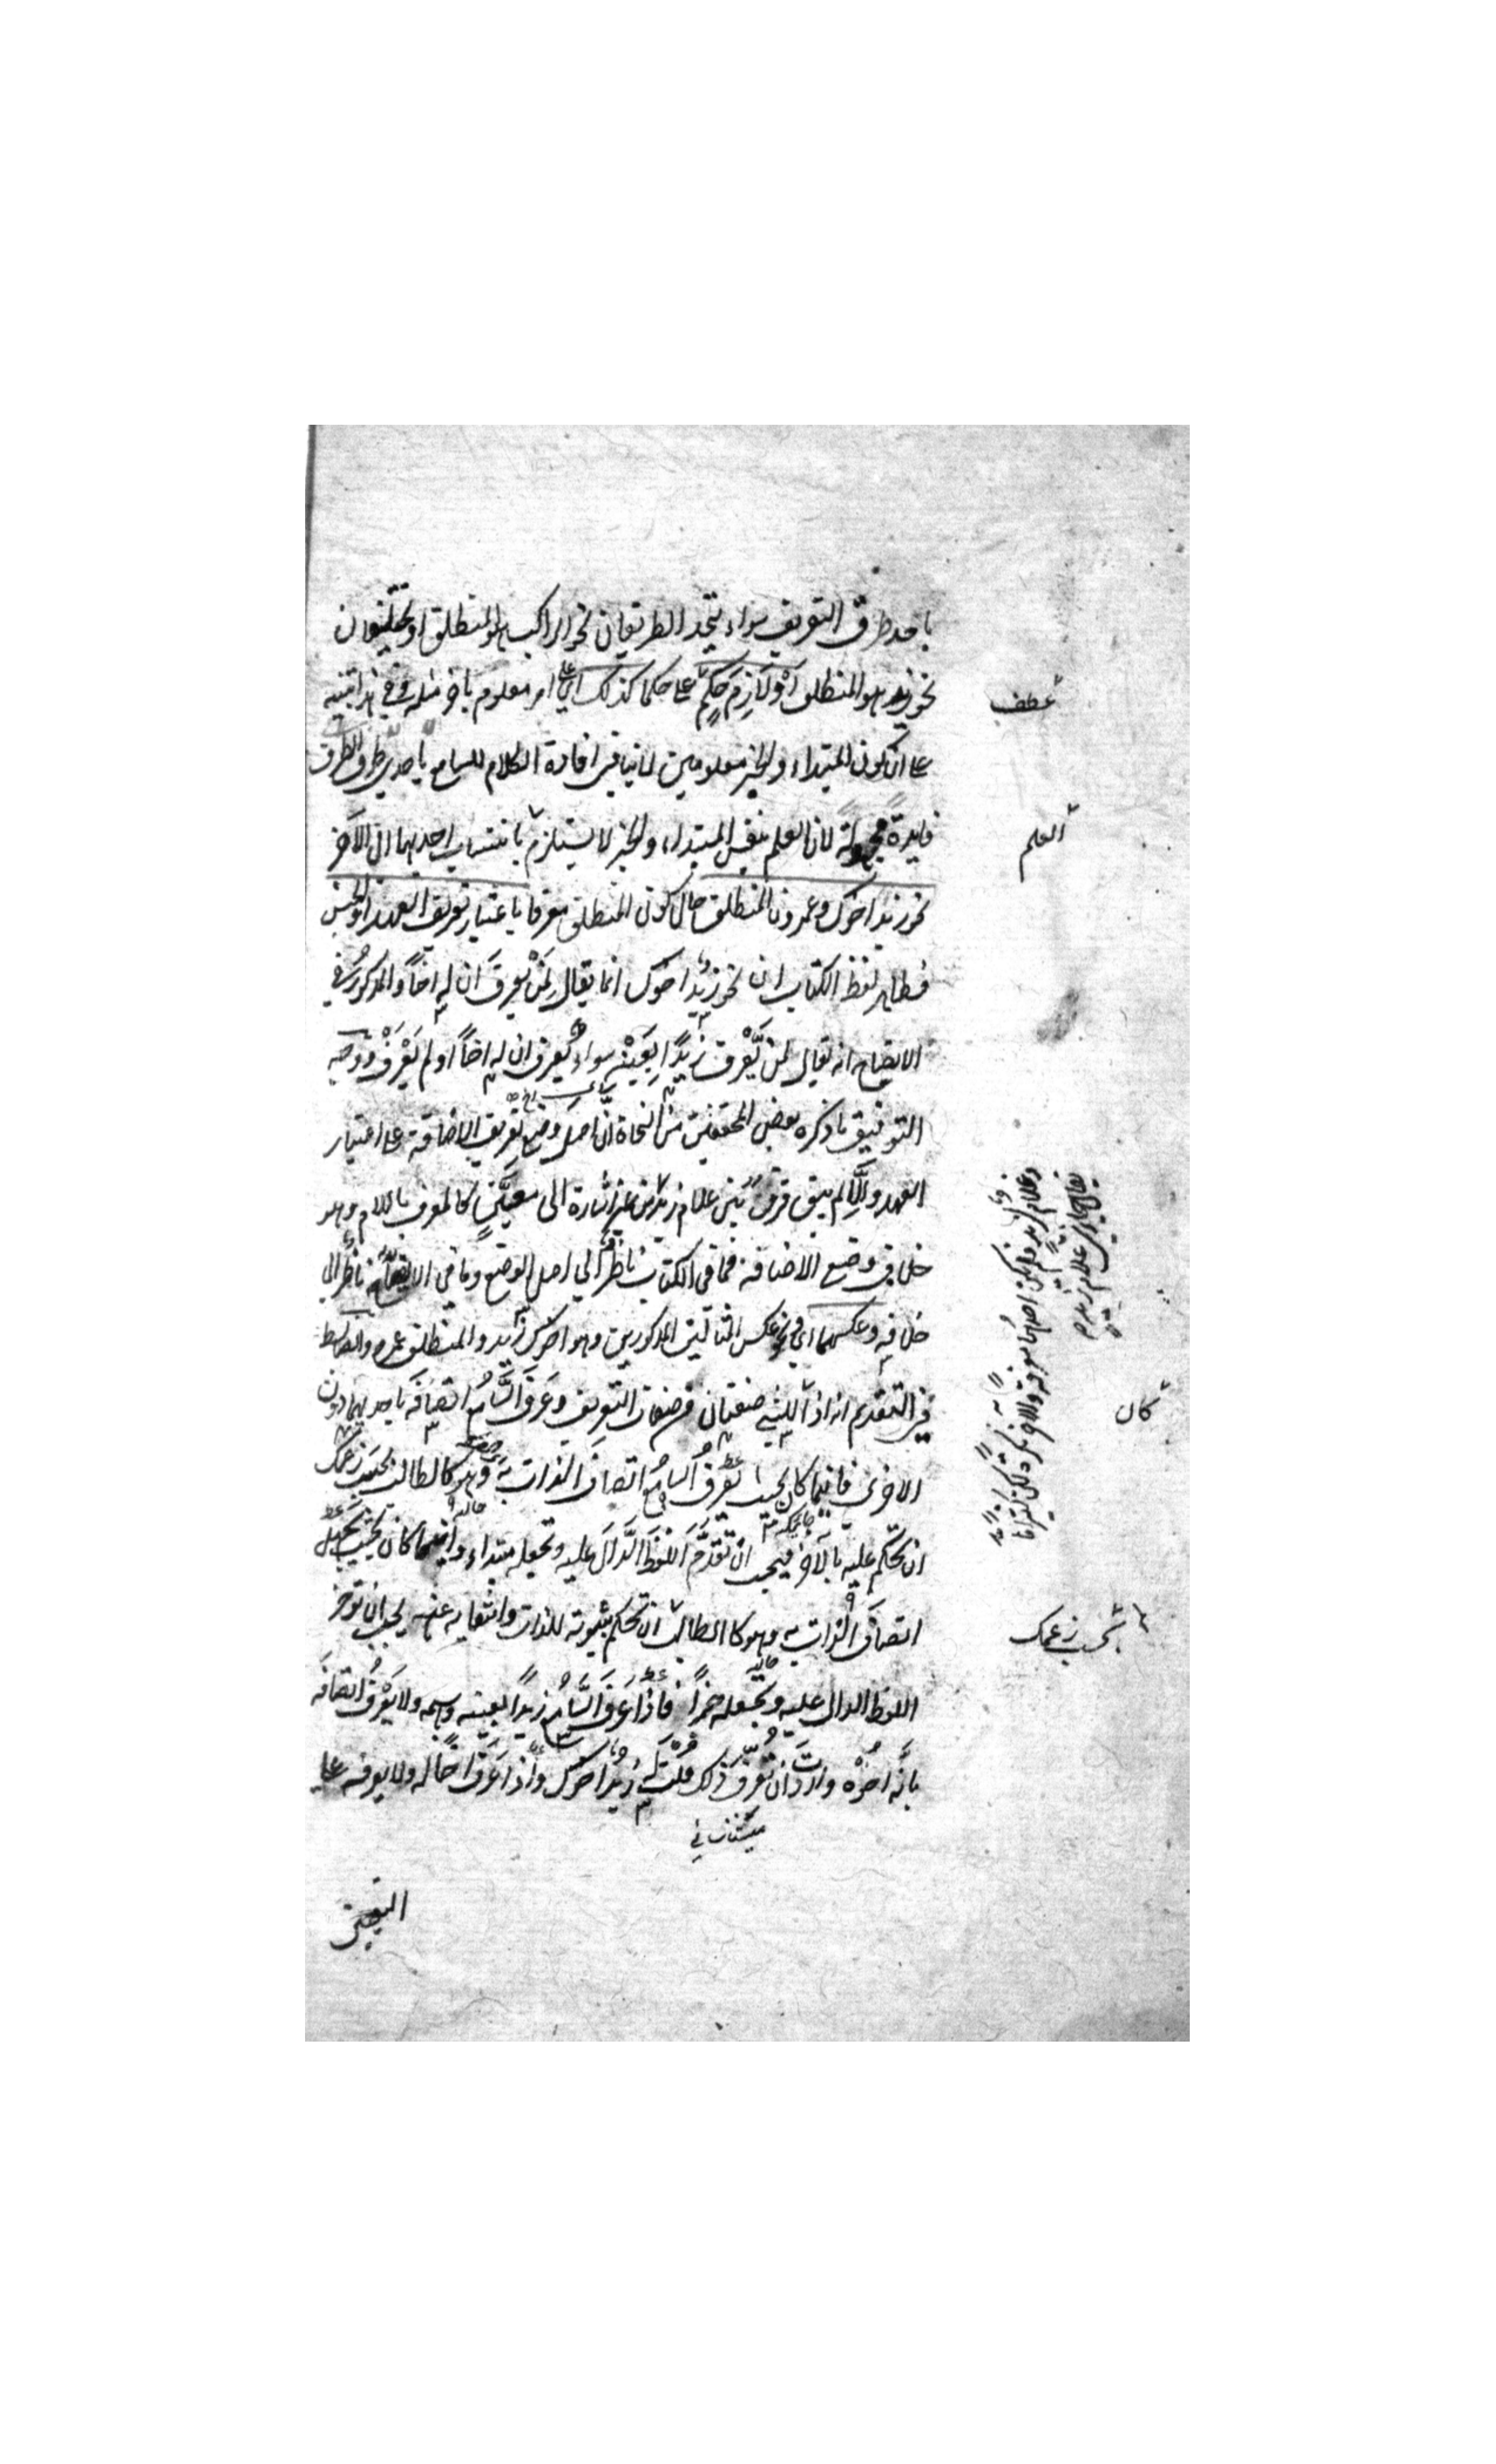 باحد طرق التعريف سواء يتحد الطريقان نحو الراكب هو المنطلق او يختلفان
نحو زيد هو المنطلق او لازم حكم على حكما كذلك اى على امر معلوم باخر مثله وفى هذا تنبيه
على ان كون المبتداء والخبر معلومين لا ينافى افادة الكلام للسامع
فايدة مجهولة لان العلم بنفس المبتداء والخبر لا يستلزم بانتساب احديهما الى الآخر
نحو زيد اخوك وعمرو ن المنطلق حال كون المنطلق معرفا باعتبار تعريف العهد او الجنس
فظاهر لفظ الكتاب ان نحو زيد اخوك انما يقال لمن يعرف ان له اخاً والمذكور فى
الايضاح انه يقال لمن يعرف زيداً بعينه سواء يعرف ان له اخاً او لم يعرف ووجه
التوفيق ما ذكره بعض المحققين من النحاة ان اصل وضع تعريف الاضافة على اعتبار
العهد والا لم يبق فرق بين غلام زيد الى معين كالمعرف باللام وهو
خلاف وضع الاضافة فما فى الكتاب ناظر الى اصل الوضع وما فى الايضاح ناظر الى
خلافه وعكسهما اى نحو عكس المثالين المذكورين وهو اخوك زيد والمنطلق عمرو والضابط
فى التقديم انه اذا للشىء صفتان من صفات التعريف وعرف السامع اتصافه باحديهما دون
الاخرى فايهما كان بحيث تعرف السامع اتصاف الذات به وهو كالطالب بحسب زعمك
ان تحكم عليه بالآخر فيجب ان تقدم اللفظ الدال عليه وتجعله مبتداء وايهما كان بحيث يجهل
اتصاف الذات به وهو كالطالب ان تحكم بثبوته للذات وانتفايه عنه يجب ان توخر
اللفظ الدال عليه وتجعله خبراً فاذا عرف السامع زيداً بعينه وبسمه ولا يعرف اتصافه
بانه اخوه واردت ان تعرف ذلك قلت له زيد اخوك واذا عرف اخا له ولا يعرفه على
التعيين
عطف
العلم
كان
بحسب زعمك